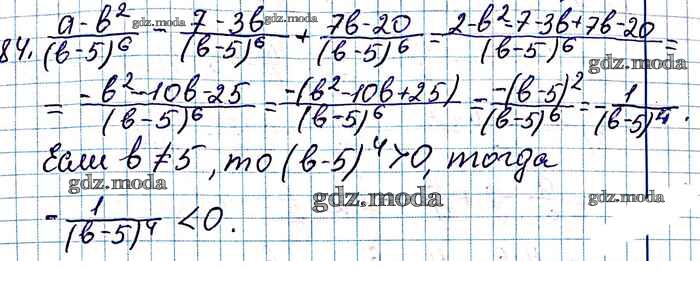 84. \frac{a-b^2}{(b-5)^6} - \frac{7-3b}{(b-5)^6} + \frac{7b-20}{(b-5)^6} = \frac{2-b^2-7-3b+7b-20}{(b-5)^6} =
= \frac{-b^2-10b-25}{(b-5)^6} = \frac{-(b^2-10b+25)}{(b-5)^6} = \frac{-(b-5)^2}{(b-5)^6} = -\frac{1}{(b-5)^4}.
Если b≠5, то (b-5)^4>0, тогда
-\frac{1}{(b-5)^4} <0.
gdz.moda
gdz.moda
gdz.moda
gdz.moda
gdz.moda
gdz.moda